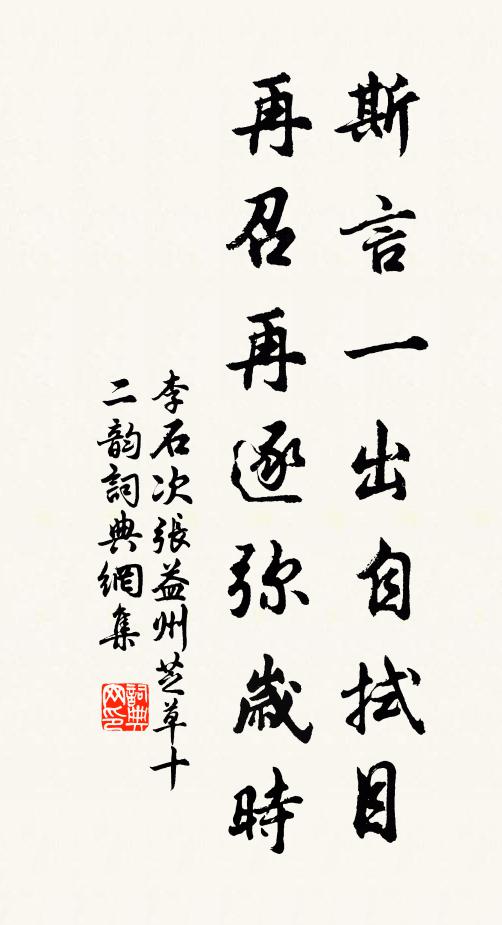 斯言一出自拭目
再召再逐弥歲時
李石次張益州芝草十
二韵詞典網集
詞典
网印